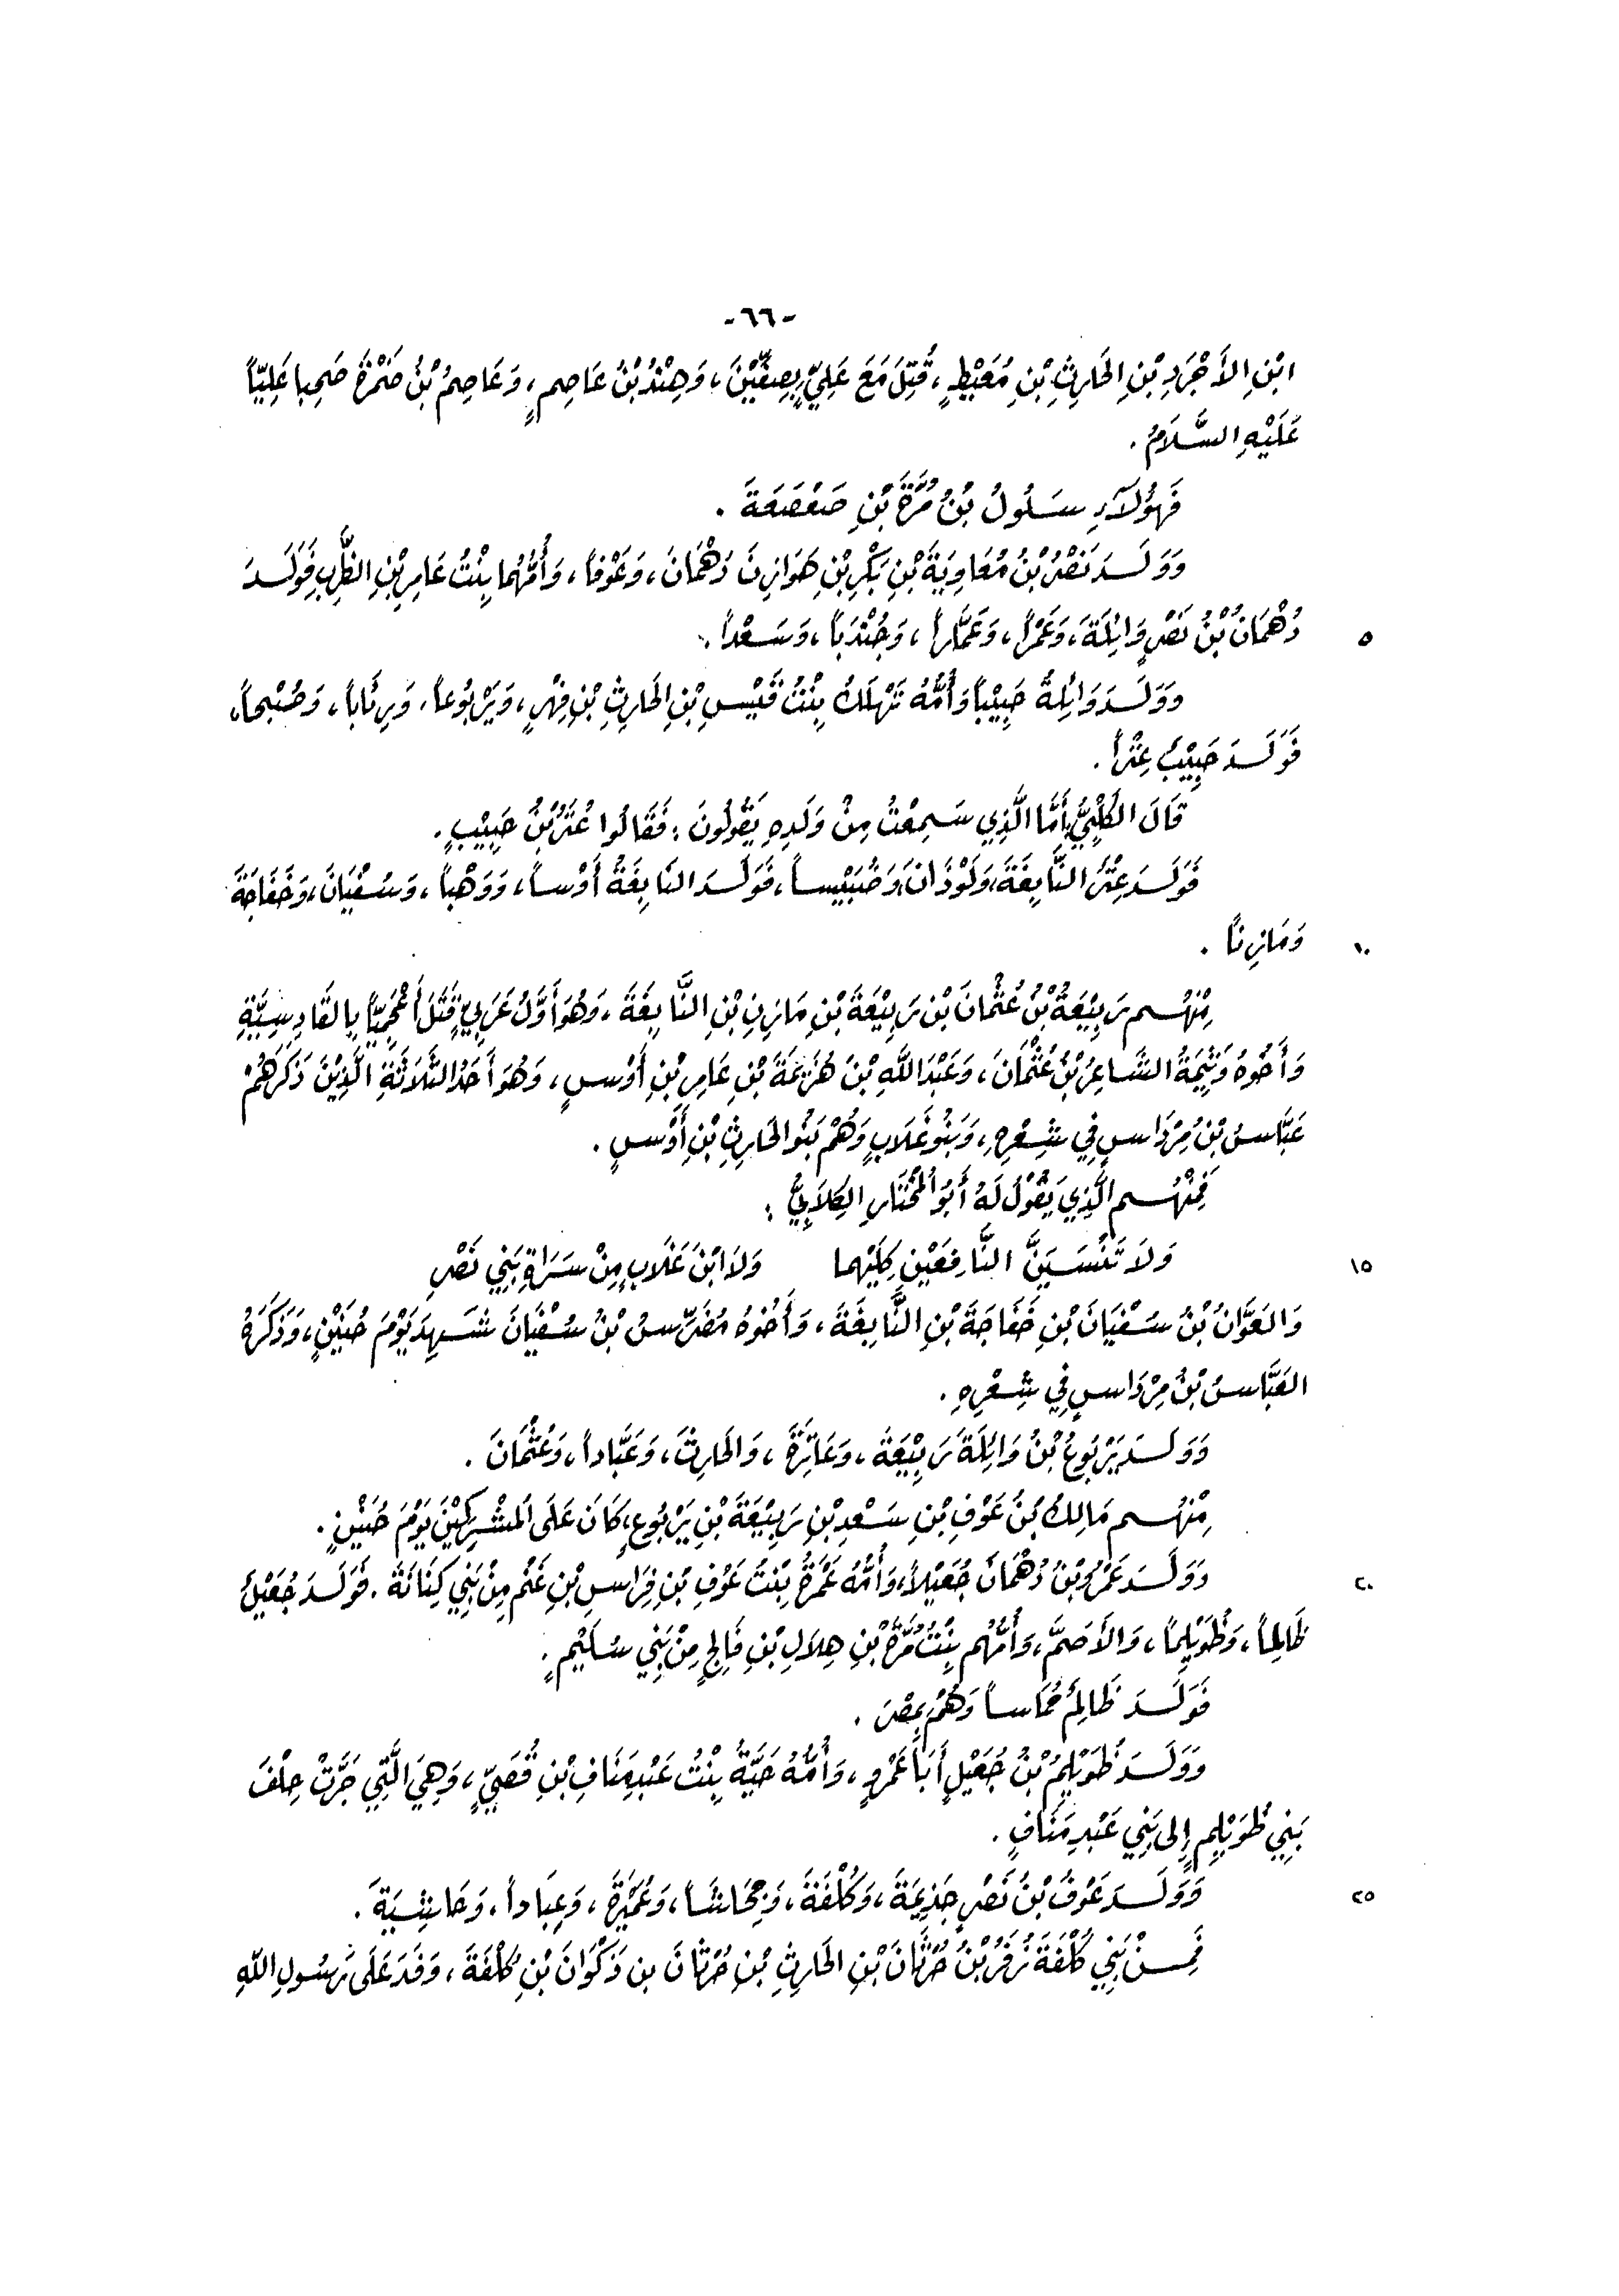 -٦٦-
ابْنِ الأَجْرَدِ بْنِ الحَارِثِ بْنِ مُعَيْطٍ، قُتِلَ مَعَ عَلِيٍّ بِصِفِّيْنَ، وَهِنْدُ بْنُ عَاصِمٍ، وَعَاصِمُ بْنُ ضَمْرَةَ صَحِبا عَلِيّاً
عَلَيْهِ السَّلَامُ.
فَهؤُلَآءِ سَلُولُ بْنُ مُرَّةَ بْنِ صَعْصَعَةَ.
وَوَلَدَ نَصْرُ بْنُ مُعَاوِيَةَ بْنِ بَكْرِ بْنِ هَوَازِنَ دُهْمَانَ، وَعَوْفاً، وَأُمُّهُما بِنْتُ عَامِرِ بْنِ الظَّرِبِ فَوَلَدَ
٥ دُهْمَانُ بْنُ نَصْرٍ وَائِلَةَ، وَعَمْراً، وَعَمَّاراً، وَجُنْدَباً، وَسَعْداً.
وَوَلَدَ وَائِلَةُ حَبِيْباً وَأُمُّهُ تَنْهَلَكُ بِنْتُ قَيْسِ بْنِ الحَارِثِ بْنِ فِهْرٍ، وَيَرْبُوعاً، وَرِئَاباً، وَصُبْحاً،
فَوَلَدَ حَبِيْبٌ عِتْراً.
قَالَ الكَلْبِيُّ: أَمَّا الَّذِي سَمِعْتُ مِنْ وَلَدِهِ يَقُولُونَ: فَقَالُوا عُتَرُ بْنُ حَبِيْبٍ.
فَوَلَدَ عِتْرٌ النَّابِغَةَ، وَلَوْذَانَ، وَضُبَيْساً، فَوَلَدَ النَابِغَةُ أَوْساً، وَوَهْباً، وَسُفْيَانَ، وَخَفَاجَةَ
١٠ وَمَازِناً.
مِنْهُم رَبِيْعَةُ بْنُ عُثْمانَ بْنِ رَبِيْعَةَ بْنِ مَازِنِ بْنِ النَّابِغَةَ، وَهُوَ أَوَّلُ عَرَبِيٍّ قَتَلَ أَعْجَمِيّاً بِالقَادِسِيَّةِ
وَأَخُوهُ وَثِيْمَةُ الشَّاعِرُ بْنُ عُثْمَانَ، وَعَبْدَ اللهِ بْنَ هُزَيْمَةَ بْنِ عَامِرِ بْنِ أَوْسٍ، وَهُوَ أَحَدُ الثَّلَاثَةِ الَّذِيْنَ ذَكَرَهُمْ
عَبَّاسُ بْنُ مِرْدَاسٍ فِي شِعْرِهِ، وَبَنُو غَلَابٍ وَهُمْ بَنُو الحَارِثِ بْنِ أَوْسٍ.
فَمِنْهُم الَّذِي يَقُوْلُ لَهُ أَبُو المُخْتَارِ الكِلَابِيُّ:
١٥ وَلاَ تَنْسَيَنَّ النَّافِعَيْنِ كِلَيْهِما وَلاَ ابْنَ غَلَابٍ مِنْ سَرَاةِ بَنِي نَصْرِ
وَالعَوَّانُ بْنُ سُفْيَانَ بْنِ خَفَاجَةَ بْنِ النَّابِغَةَ، وَأَخُوهُ مُضَرِّسُ بْنُ سُفْيَانَ شَهِدَ يَوْمَ حُنَيْنٍ، وَذَكَرَهُ
العَبَّاسُ بْنُ مِرْدَاسٍ فِي شِعْرِهِ.
وَوَلَدَ يَرْبُوعُ بْنُ وَائِلَةَ رَبِيْعَةَ، وَعَاتِرَةَ، وَالحَارِثَ، وَعَبَّاداً، وَعُثْمَانَ.
مِنْهُم مَالِكُ بْنُ عَوْفِ بْنِ سَعْدِ بْنِ رَبِيْعَةَ بْنِ يَرْبُوعٍ، كَانَ عَلَى المُشْرِكِيْنَ يَوْمَ حُنَيْنٍ.
٢٠ وَوَلَدَ عَمْرُو بْنُ دُهْمَانَ جُعَيْلاً، وَأُمُّهُ عَمْرَةُ بِنْتُ عَوْفِ بْنِ فِرَاسِ بْنِ غَنْمٍ مِنْ بَنِي كِنَانَةَ. فَوَلَدَ جُعَيْلٌ
ظَالِماً، وَظُوَيْلِماً، وَالأَصَمَّ، وَأُمُّهُم بِنْتُ مُرَّةَ بْنِ هِلاَلِ بْنِ فَالِجٍ مِنْ بَنِي سُلَيْمٍ.
فَوَلَدَ ظَالِمٌ حُمَاساً وَهُمْ بِمِصْرَ.
وَوَلَدَ ظُوَيْلِمُ بْنُ جُعَيْلٍ أَبَا عَمْرٍو، وَأُمُّهُ حَيَّةُ بِنْتُ عَبْدِ مَنَافِ بْنِ قُصَيٍّ، وَهِيَ الَّتِي جَرَّتْ حِلْفَ
بَنِي ظُوَيْلِمٍ إِلى بَنِي عَبْدِ مَنَافٍ.
٢٥ وَوَلَدَ عَوْفُ بْنُ نَصْرٍ جَذِيْمَةَ، وَكُلْفَةَ، وَجِحَاشاً، وَعُمَيْرَةَ، وَعِبَاداً، وَحَاشِيَةَ.
فَمِنْ بَنِي كُلْفَةَ زُفَرُ بْنُ حُرْثَانَ بْنِ الحَارِثِ بْنِ حُرْثَانَ بن ذَكْوَانَ بْنِ كُلْفَةَ، وَفَدَ عَلَى رَسُولِ اللهِ